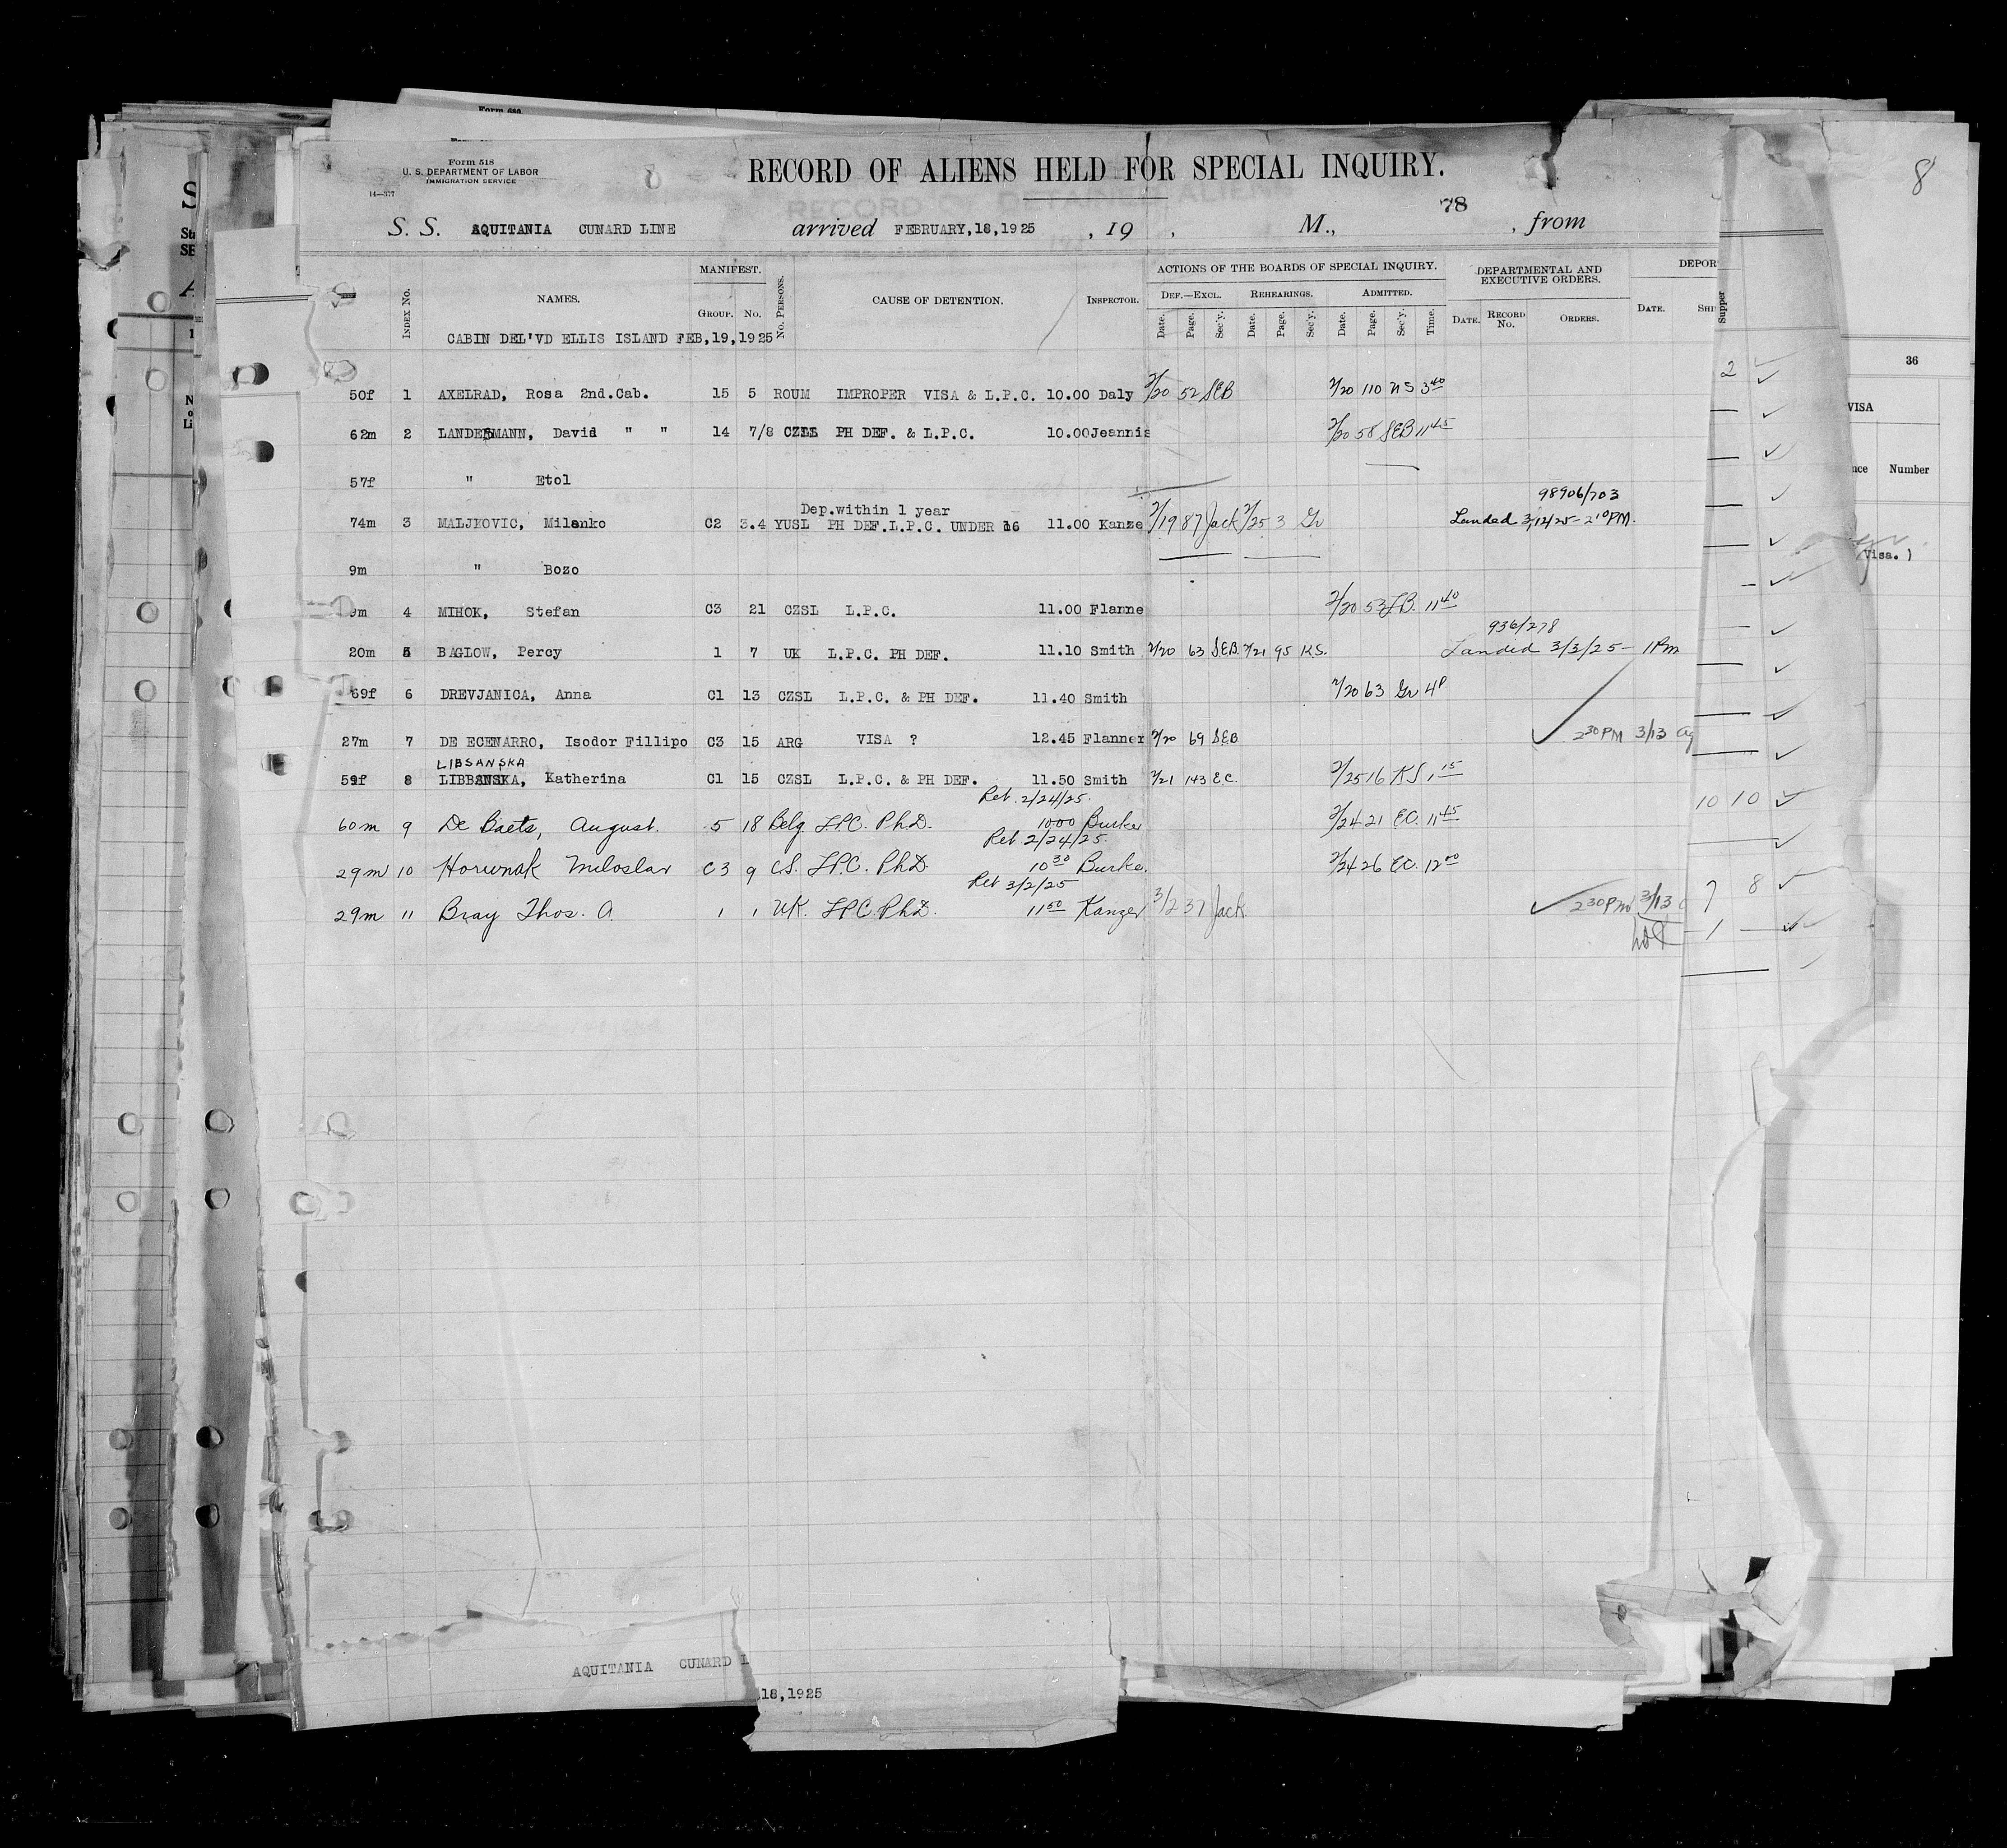 Form 680
Form 518
U. S. DEPARTMENT OF LABOR
IMMIGRATION SERVICE
14—377
8
RECORD OF ALIENS HELD FOR SPECIAL INQUIRY.
8
78
S. S. AQUITANIA CUNARD LINE arrived FEBRUARY,18,1925 , 19 , M., , from
MANIFEST. ACTIONS OF THE BOARDS OF SPECIAL INQUIRY. DEPARTMENTAL AND EXECUTIVE ORDERS. DEPOR
INDEX No. NAMES. GROUP. No. No. PERSONS. CAUSE OF DETENTION. INSPECTOR. DEF.—EXCL. REHEARINGS. ADMITTED.
Date. Page. Sec'y. Date. Page. Sec'y. Date. Page. Sec'y. Time. DATE. RECORD No. ORDERS. DATE. SHI Supper
CABIN DEL'VD ELLIS ISLAND FEB,19,1925
36
50f 1 AXELRAD, Rosa 2nd.Cab. 15 5 ROUM IMPROPER VISA & L.P.C. 10.00 Daly 2/20 52 SEB 2/20 110 NS 3 40
2
VISA
62m 2 LANDESMANN, David " " 14 7/8 CZSL PH DEF. & L.P.C. 10.00 Jeannis 2/20 58 SEB 11 45
nce Number
57f " Etol
98906/703
Dep.within 1 year
74m 3 MALJKOVIC, Milenko C2 3.4 YUSL PH DEF.L.P.C. UNDER 16 11.00 Kanze 2/19 87 Jack 2/25 3 Gr Landed 3/12/25 - 2 10 PM.
Visa. )
9m " Bozo
9m 4 MIHOK, Stefan C3 21 CZSL L.P.C. 11.00 Flanne 2/20 53 11 40
936/278
20m 5 BAGLOW, Percy 1 7 UK L.P.C. PH DEF. 11.10 Smith 2/20 63 SEB. 2/21 95 K.S. Landed 3/3/25 - 1 Pm
69f 6 DREVJANICA, Anna C1 13 CZSL L.P.C. & PH DEF. 11.40 Smith 2/20 63 Gr 4P
27m 7 DE ECENARRO, Isodor Fillipo C3 15 ARG VISA ? 12.45 Flanner 2/20 69 SEB 2 30 PM 3/13
LIBSANSKA
59f 8 LIBBANSKA, Katherina C1 15 CZSL L.P.C. & PH DEF. 11.50 Smith 2/21 143 E.C. 2/25 16 KS 1 15
Ret. 2/24/25.
10 10
60m 9 De Baets, August. 5 18 Belg LPC. PhD. 10 00 Burke 2/24 21 EC. 11 45
Ret 2/24/25.
29m 10 Horunak Miloslav C3 9 CS. LPC. PhD 10 30 Burke. 2/24 26 EC. 12 00
Ret 3/2/25
29m 11 Bray Thos. A. 1 1 UK. LPC. PhD. 11 50 Kanzer 3/2 37 Jack. 2 30 PM 3/13
7 8
1
AQUITANIA CUNARD L
,18,1925